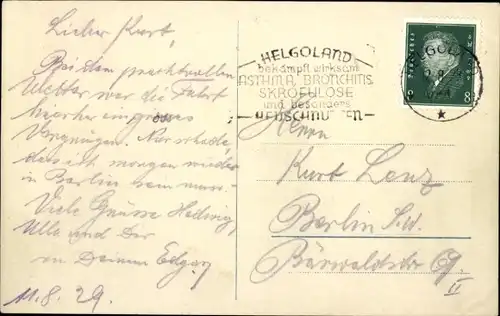 Lieber Kurt,
Bei dem prachtvollen
Wetter war die Fahrt
hierher ein grosses
Vergnügen. Nur schade,
dass ich morgen wieder
in Berlin sein muss.
Viele Grüsse Hedwig,
Ulla und Dir
von Deinem Edgar
11.8.29.
HELGOLAND
bekämpft wirksam
ASTHMA, BRONCHITIS
SKROFULOSE
und besonders
HEUSCHNUPFEN
Deutsches Reich
8 8
HELGOLAND
Herrn
Kurt Lenz
Berlin S.W.
Bärwaldstr 69
II